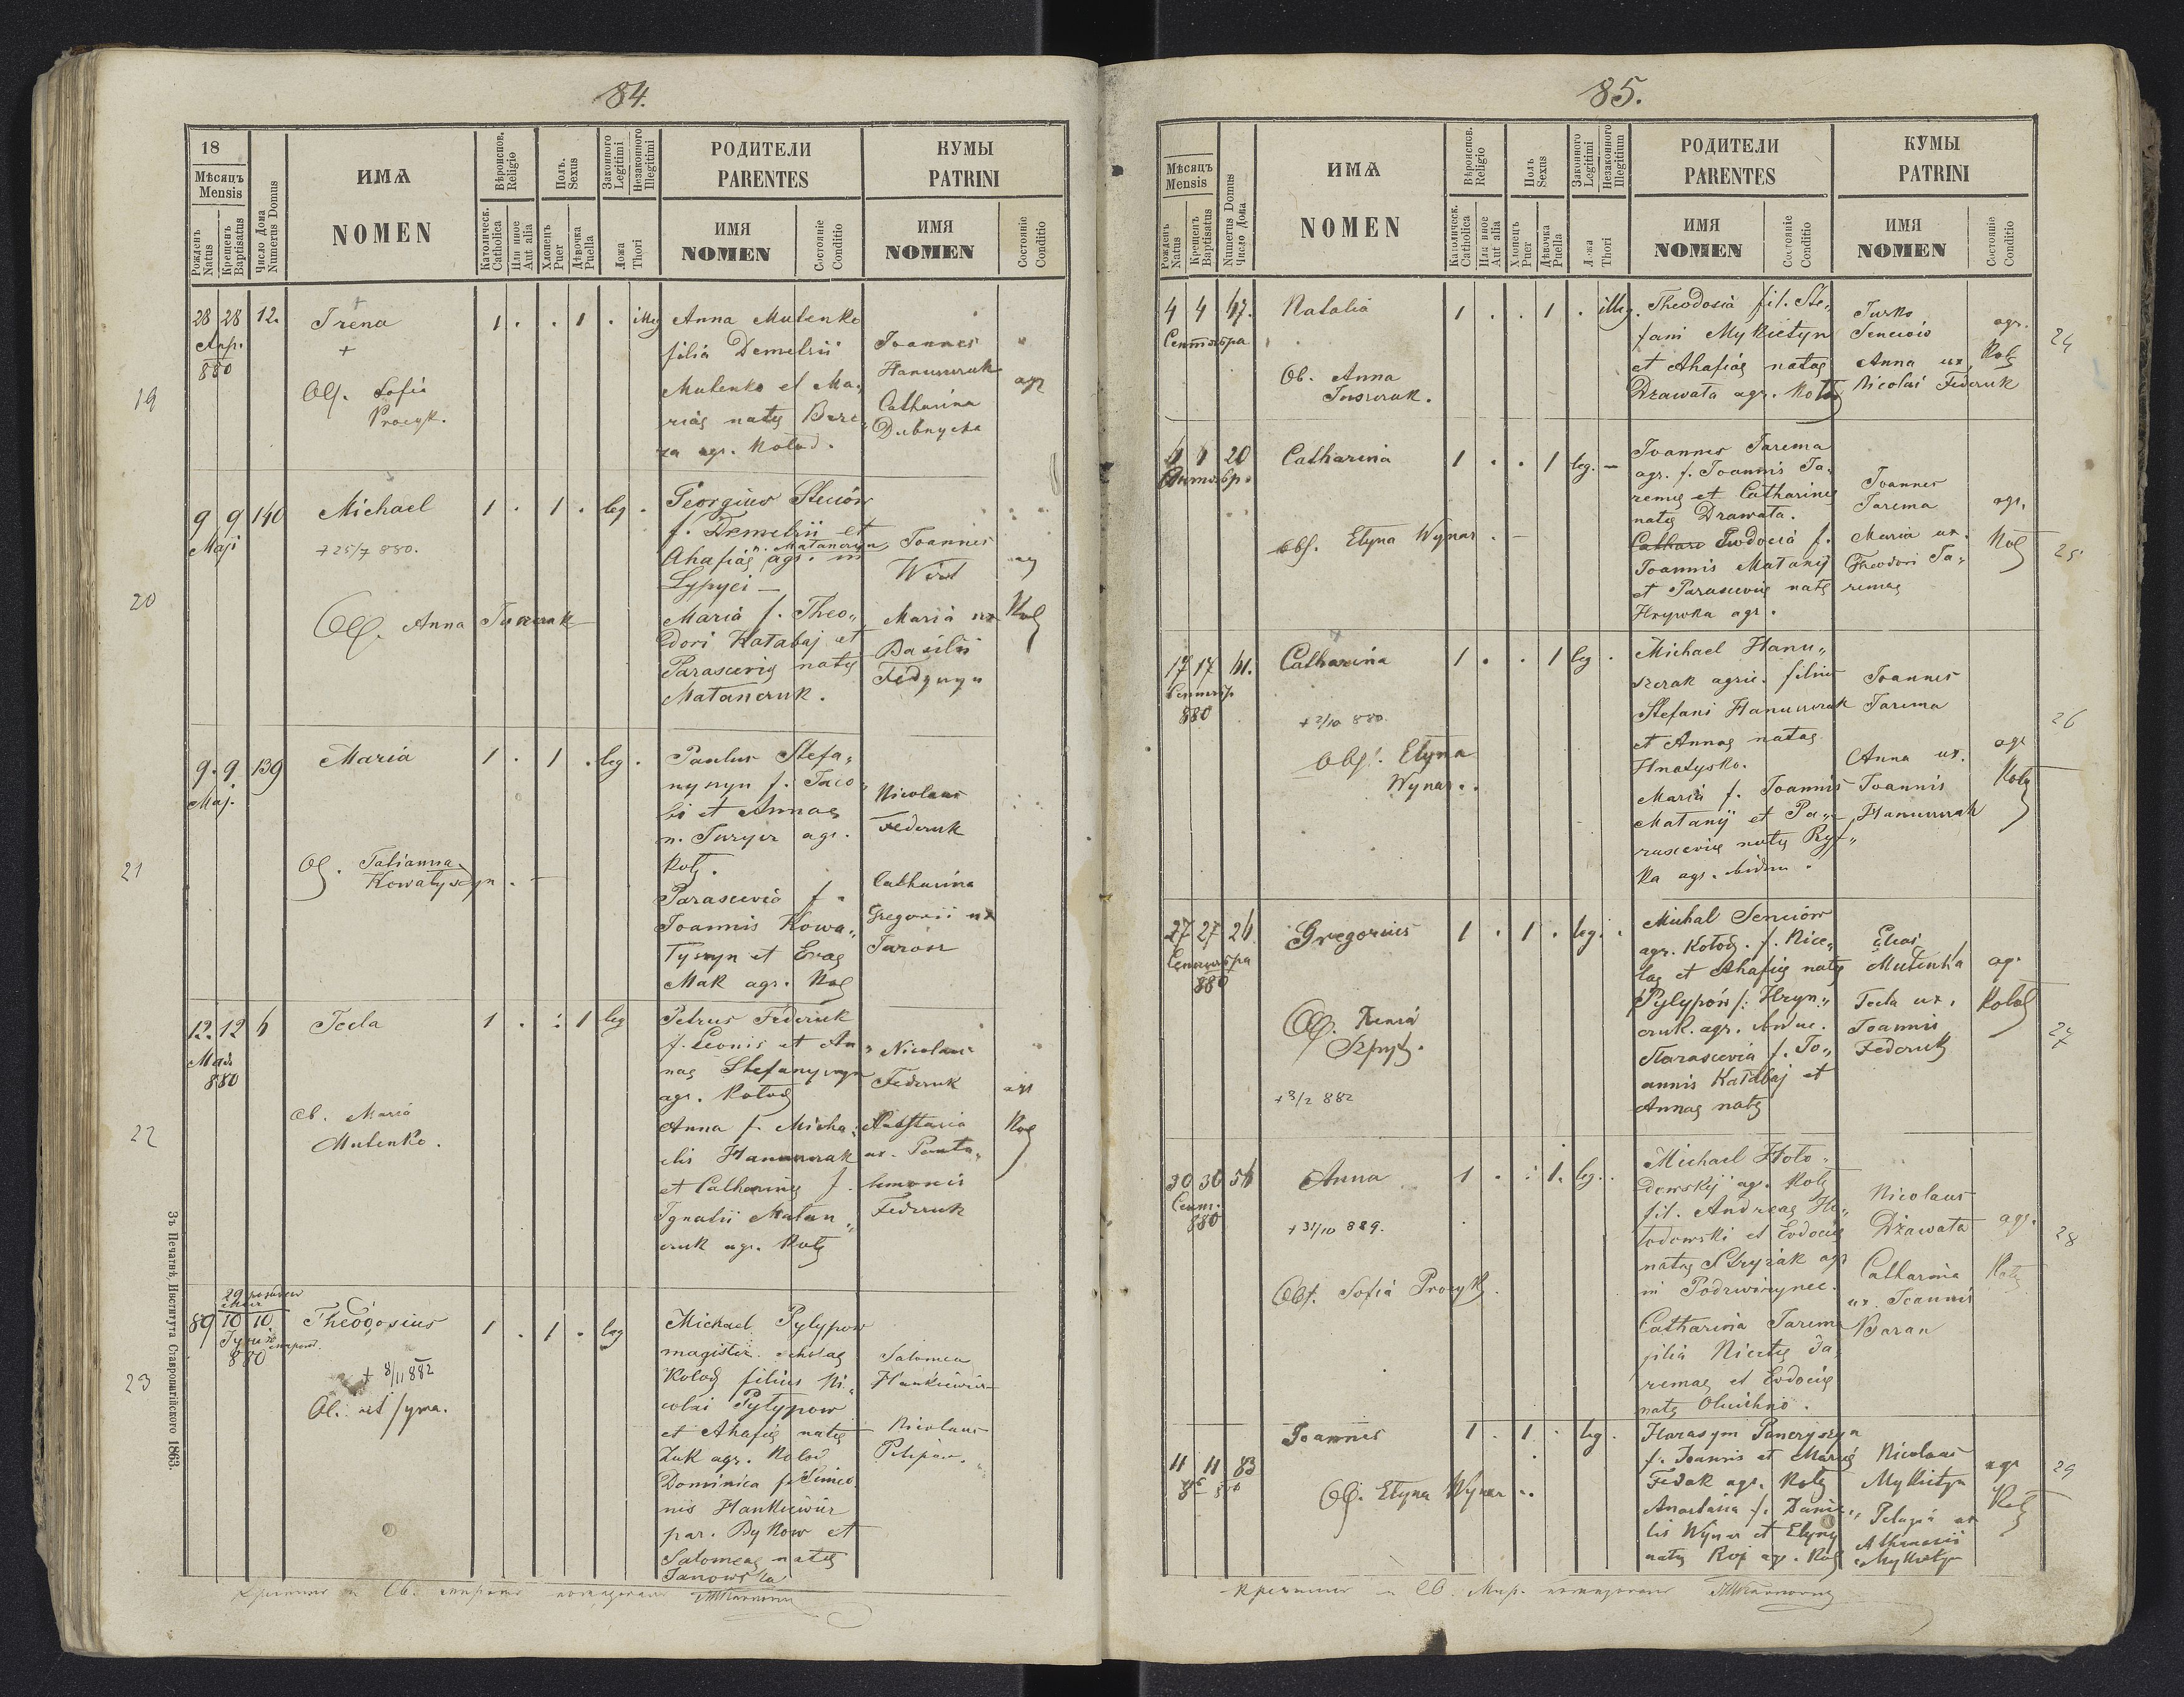 84.
18
Мѣсяцъ
Mensis
Рожденъ
Natus
Крещенъ
Baptisatus
Число Дома
Numerus Domus
ИМѦ
NOMEN
Вѣроиспов.
Religio
Католическ.
Catholica
Или иное
Aut alia
Полъ.
Sexus
Хлопецъ
Puer
Дѣвочка
Puella
Законного
Legitimi
Незаконного
Illegitimi
Ложа
Thori
РОДИТЕЛИ
PARENTES
ИМЯ
NOMEN
Состояніе
Conditio
КУМЫ
PATRINI
ИМЯ
NOMEN
Состояніе
Conditio
19
28 28 12.
Апр.
880
Irena
Obs. Sofia
Procyk.
1 . . 1 . illeg
Anna Mutenko
filia Demetrii
Mutenko et Ma,
riae natae Bere,
za agr. Kolod.
Joannes
Hanuszczak
Catharina
Dubnycka
agr
20
9 9 140
Maji
Michael
+ 25/7 880.
Obs. Anna Juszczak
1 . 1 . leg .
Georgius Steciów
f. Demetrii et
Ahafiae agr. in
Lypyci —
Maria f. Theo,,
dori Katabaj et
Parasceviae natae
Matanczuk.
Joannes
Wirt
Maria ux
Basilii
agr
Kol
21
9. 9 139
Maj.
Maria
Ob. Tatianna
Kowatyszyn.
1 . 1 . leg .
Paulus Stefa,,
nyszyn f. Jaco
bi et Annae
n. Juryn agr.
Kol.
Parascevia f.
Joannis Kowa,,
tyszyn et Evae
Mak agr. Kol
Nicolaus
Federuk
Catharina
Gregorii ux
Jarosz
22
12. 12 6
Maii
880
Tecla
Ob. Maria
Mutenko.
1 . : 1 leg
Petrus Federuk
f. Leonis et An
nae Stefanyszyn
agr. Kolod
Anna f. Micha,
elis Hanuszczak
et Catharinae f.
Ignatii Matan,,
czuk agr. Kol
Nicolaus
Federuk
Anastasia
ux. Panta,
lemonis
Federuk
agr
Kol
23
89 10 10
880
Theodosius
+ 8/11 882
1 . 1 . leg
Michael Pylypow
magister scholae
Kolod filius Ni,
colai Pylypow
et Ahafiae natae
Zuk agr. Kolod
Dominica f. Simeo
nis Hankiewicz
par. Bykow et
Salomeae natae
Janowska
Salomea
Hankiewicz
Nicolaus
Pilipów.
Зъ Печатнѣ, Института Ставропигійского 1863.
85.
Мѣсяцъ
Mensis
Рожденъ
Natus
Крещенъ
Baptisatus
Numerus Domus
Число Дома
ИМѦ
NOMEN
Вѣроиспов.
Religio
Католическ.
Catholica
Или иное
Aut alia
Полъ
Sexus
Хлопецъ
Puer
Дѣвочка
Puella
Законного
Legitimi
Незаконного
Illegitimum
Ложа
Thori
РОДИТЕЛИ
PARENTES
ИМЯ
NOMEN
Состояніе
Conditio
КУМЫ
PATRINI
ИМЯ
NOMEN
Состояніе
Conditio
4 4 47.
Сентября
Natalia
Ob. Anna
Juszczak.
1 . . 1 . illeg.
Theodosia fil. Ste,,
fani Mykietyn
et Ahafiae natae
Dzawata agr. Kolod
Jurko
Senciów
Anna ux
Nicolai Federuk
agr.
Kol
24
20
Catharina
Obs. Elyna Wynar.
1 . . 1 leg. —
Joannes Jarema
agr. f. Joannis Ja,
remae et Catharinae
natae Drawata.
Eudocia f.
Joannis Matanij
et Parasceviae natae
Hrywka agr.
Joannes
Jarema
Maria ux.
Theodori Ja,,
remae
agr.
Kol
25
17 17 41.
880
Catharina
+ 2/10 880.
Obs. Elyna
Wynar.
1 . . 1 leg .
Michael Hanu,,
szczak agric. filius
Stefani Hanuszczak
et Annae natae
Hnatysko.
Maria f. Joannis
Matanij et Pa,,
rasceviae natae Ryf,,
ka agr.
Joannes
Jarema
Anna ux.
Joannis
Hanuszczak
agr
Kol
26
27 27 24
Сентября
880
Gregorius
Obs. Xenia
+ 3/2 882
1 . 1 . leg.
Michal Senciów
agr. Kolod. f. Nico,,
lae et Ahafiae natae
Pylypów f. Hryn,,
czuk. agr.
Parascevia f. Jo,,
annis Katabaj et
Annae natae
Elias
Mutenka
Tecla ux.
Joannis
Federuk
agr
Kolod
27
30 30 54
Сент.
880
Anna
+ 31/10 889.
Obs. Sofia Procyk.
1 . : 1. leg.
Michael Holo,
dowskij agr. Kol
fil. Andreae Ho,,
lodowski et Evdociae
natae Stryzak agr
in Podzwirynec.
Catharina Jarema
filia Nicetae Ja,
remae et Evdociae
natae Oluichno.
Nicolaus
Dzawata
Catharina
ux. Joannis
Baran
agr.
Kol
28
11 11 83
Joannes
Obs. Elyna Wynar.
1 . 1 . leg.
Harasym Pancryszyn
f. Joannis et Mariae
Fedak agr. Kol
Anastasia f. Danie,,
lis Wynar et Elyny
natae Roj agr. Kol
Nicolaus
Mykietyn
Pelagia ux
Athanasii
Mykietyn
agr
Kol
29